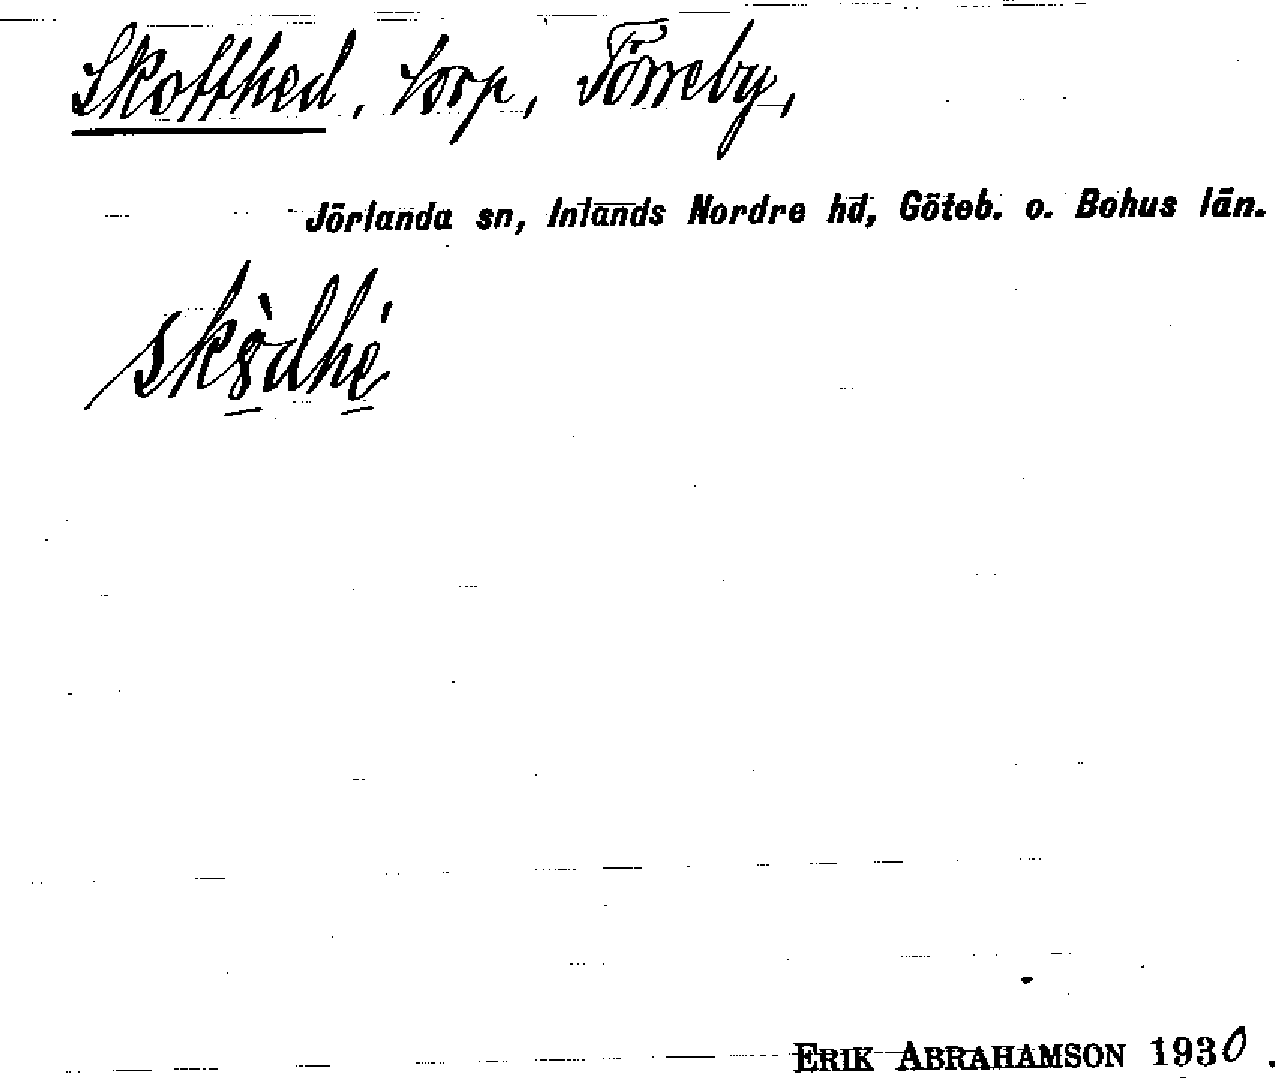 Skotthed, torp, Törreby,
Jörlanda sn, Inlands Nordre hd, Göteb. o. Bohus län.
ERIK ABRAHAMSON 1930.